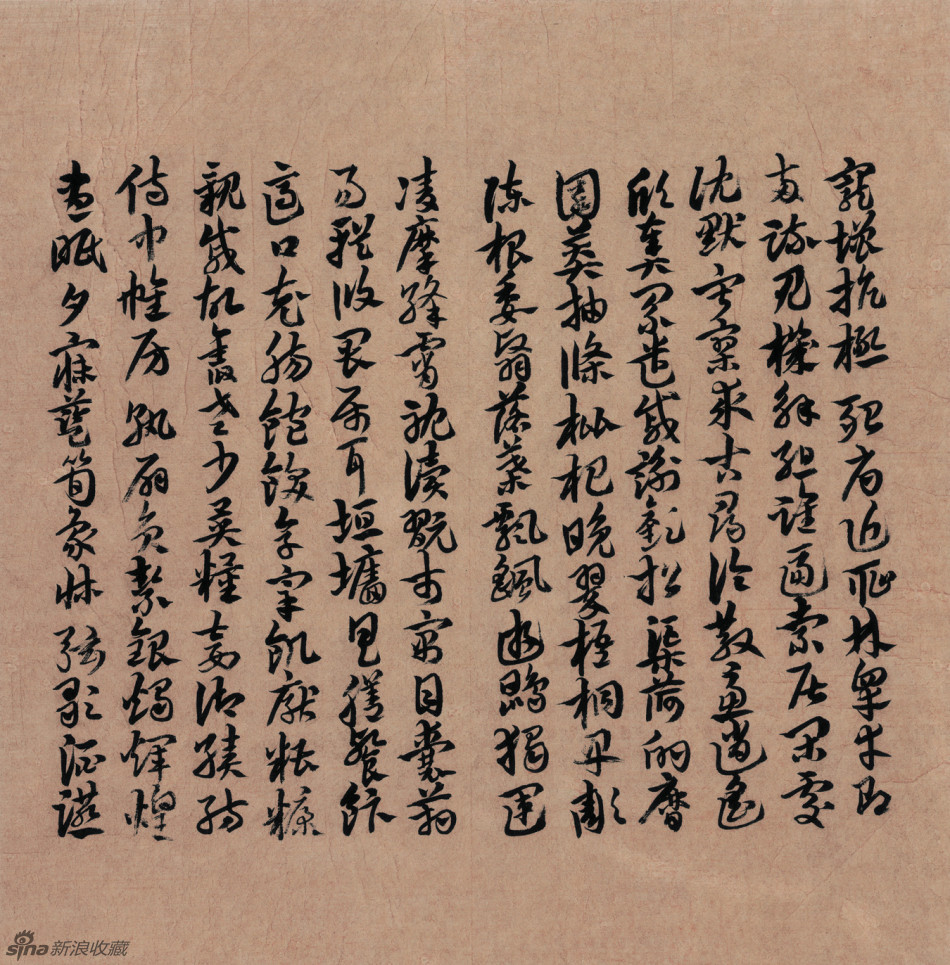 寵增抗極殆辱近恥林皋幸即
兩疏見機解組誰逼索居閑處
沈默寂寥求古尋論散慮逍遙
欣奏累遣慼謝歡招渠荷的歷
園莽抽條枇杷晚翠梧桐早彫
陳根委翳落葉飄颻遊鵾獨運
凌摩絳霄耽讀翫市寓目囊箱
易輶攸畏屬耳垣墻具膳餐飯
適口充腸飽飫烹宰飢厭糟糠
親戚故舊老少異糧妾御績紡
侍巾帷房紈扇圓潔銀燭煒煌
晝眠夕寐藍筍象床弦歌酒讌
sina新浪收藏